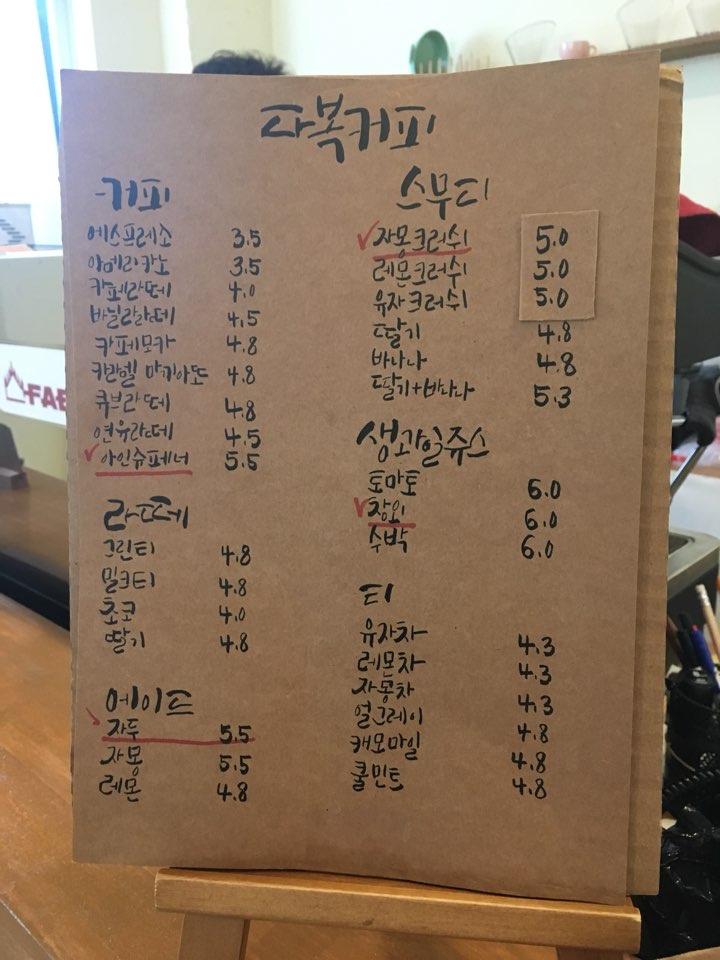 다복커피
커피
에스프레소 3.5
아메리카노 3.5
카페라떼 4.0
바닐라라떼 4.5
카페모카 4.8
카라멜 마끼아또 4.8
큐브라떼 4.8
연유라떼 4.5
아인슈페너 5.5
라떼
그린티 4.8
밀크티 4.8
초코 4.0
딸기 4.8
에이드
자두 5.5
자몽 5.5
레몬 4.8
스무디
자몽크러쉬 5.0
레몬크러쉬 5.0
유자크러쉬 5.0
딸기 4.8
바나나 4.8
딸기+바나나 5.3
생과일쥬스
토마토 6.0
참외 6.0
수박 6.0
티
유자차 4.3
레몬차 4.3
자몽차 4.3
얼그레이 4.8
캐모마일 4.8
쿨민트 4.8